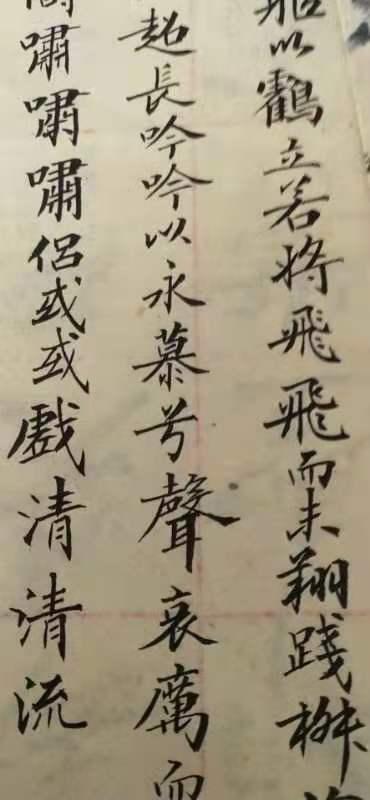 軀以鸖立若將飛飛而未翔踐椒
超長吟吟以永慕兮聲哀厲而
嘯嘯嘯侶或或戲清清流